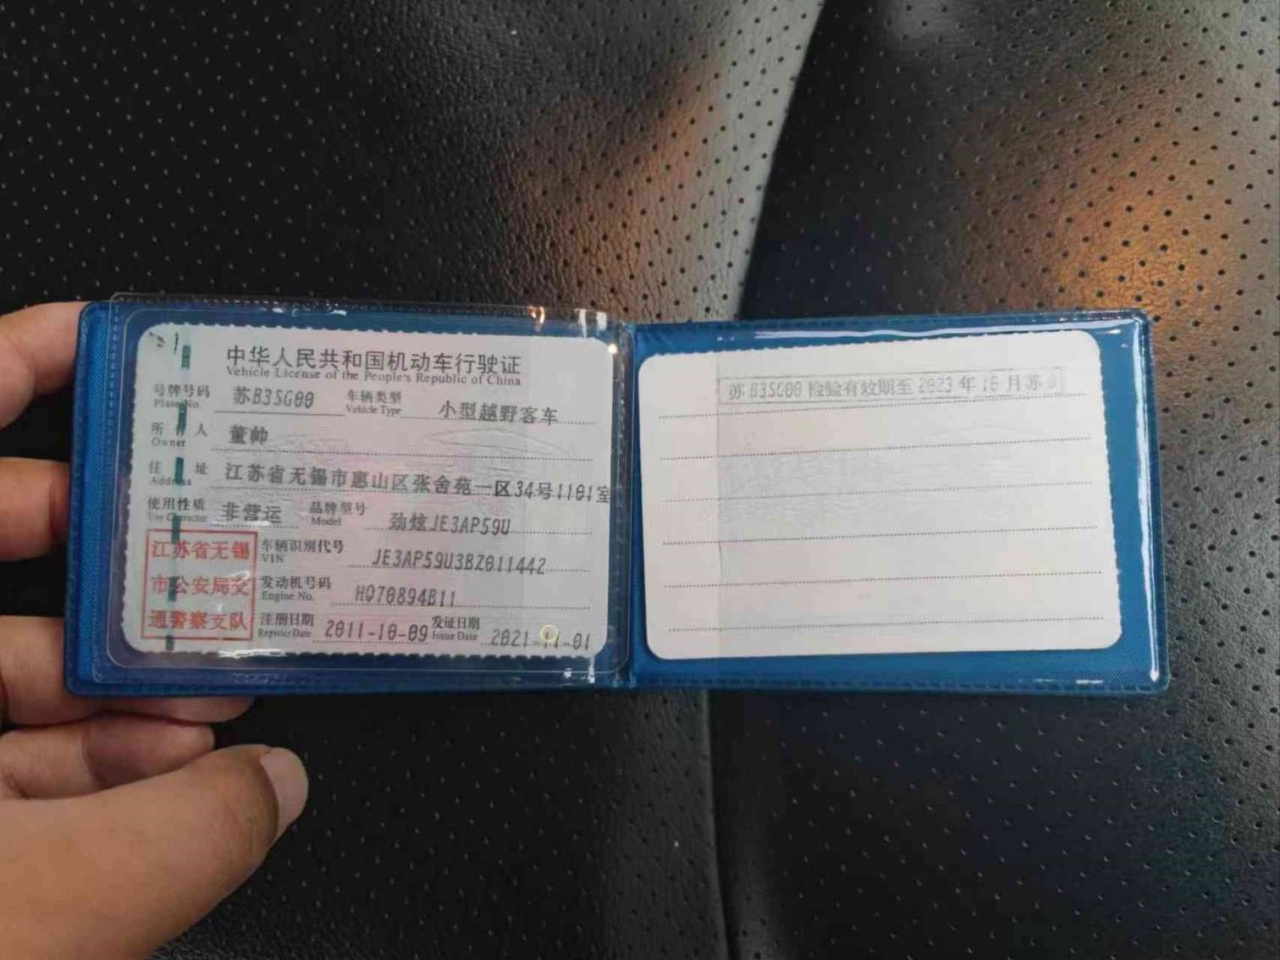 中华人民共和国机动车行驶证
Vehicle License of the People's Republic of China
号牌号码 苏B3SG00 车辆类型 小型越野客车
Plate No. Vehicle Type
所有人 董帅
Owner
住址 江苏省无锡市惠山区张舍苑一区34号1101室
Address
使用性质 非营运 品牌型号 劲炫JE3AP59U
Use Character Model
江苏省无锡
市公安局交
通警察支队
车辆识别代号 JE3AP59U3BZ011442
VIN
发动机号码 HQ70894B11
Engine No.
注册日期 2011-10-09 发证日期 2021-11-01
Register Date Issue Date
苏B3SG00 检验有效期至 2023 年 10 月 苏